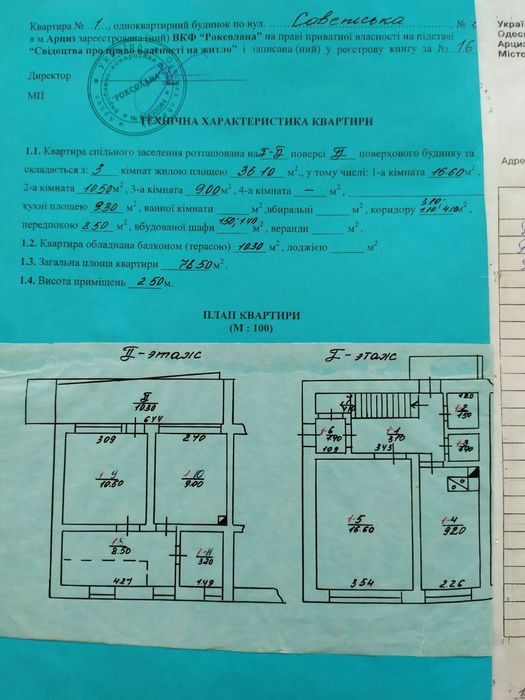 Квартира № 1, одноквартирний будинок по вул. Советська №
в м.Арциз зареєстрована (ний) ВКФ “Роксолана” на праві приватної власності на підставі
“Свідоцтва про право власності на житло” і записана (ний) у реєстрову книгу за № 16
Директор
МП
“РОКСОЛАНА”
ТЕХНІЧНА ХАРАКТЕРИСТИКА КВАРТИРИ
1.1. Квартира спільного заселення розташована на I-II поверсі II поверхового будинку та
складається з: 3 кімнат жилою площею 36.10 м²., у тому числі: 1-а кімната 16.60 м²,
2-а кімната 10.50 м², 3-а кімната 9.00 м², 4-а кімната – м²,
кухні площею 9.30 м², ванної кімнати м², вбиральні м², коридору 3.10 4.10 м²,
передпокою 8.50 м², вбудованої шафи 1.50, 1.40 м², веранди м².
1.2. Квартира обладнана балконом (терасою) 10.30 м², лоджією м².
1.3. Загальна площа квартири 78.50 м².
1.4. Висота приміщень 2.50 м.
ПЛАН КВАРТИРИ
(М : 100)
II-этаж
I-этаж
II
10.30
6.44
3.09
2.40
1-10
9.00
8.50
4.21
3.20
1.49
1-6
1.40
1.09
1-1
3.10
3.43
1.20
1-2
1.50
1-3
1.40
1-5
16.60
3.54
1-4
9.20
2.26
Украї
Одес
Арциз
Місто
Адре